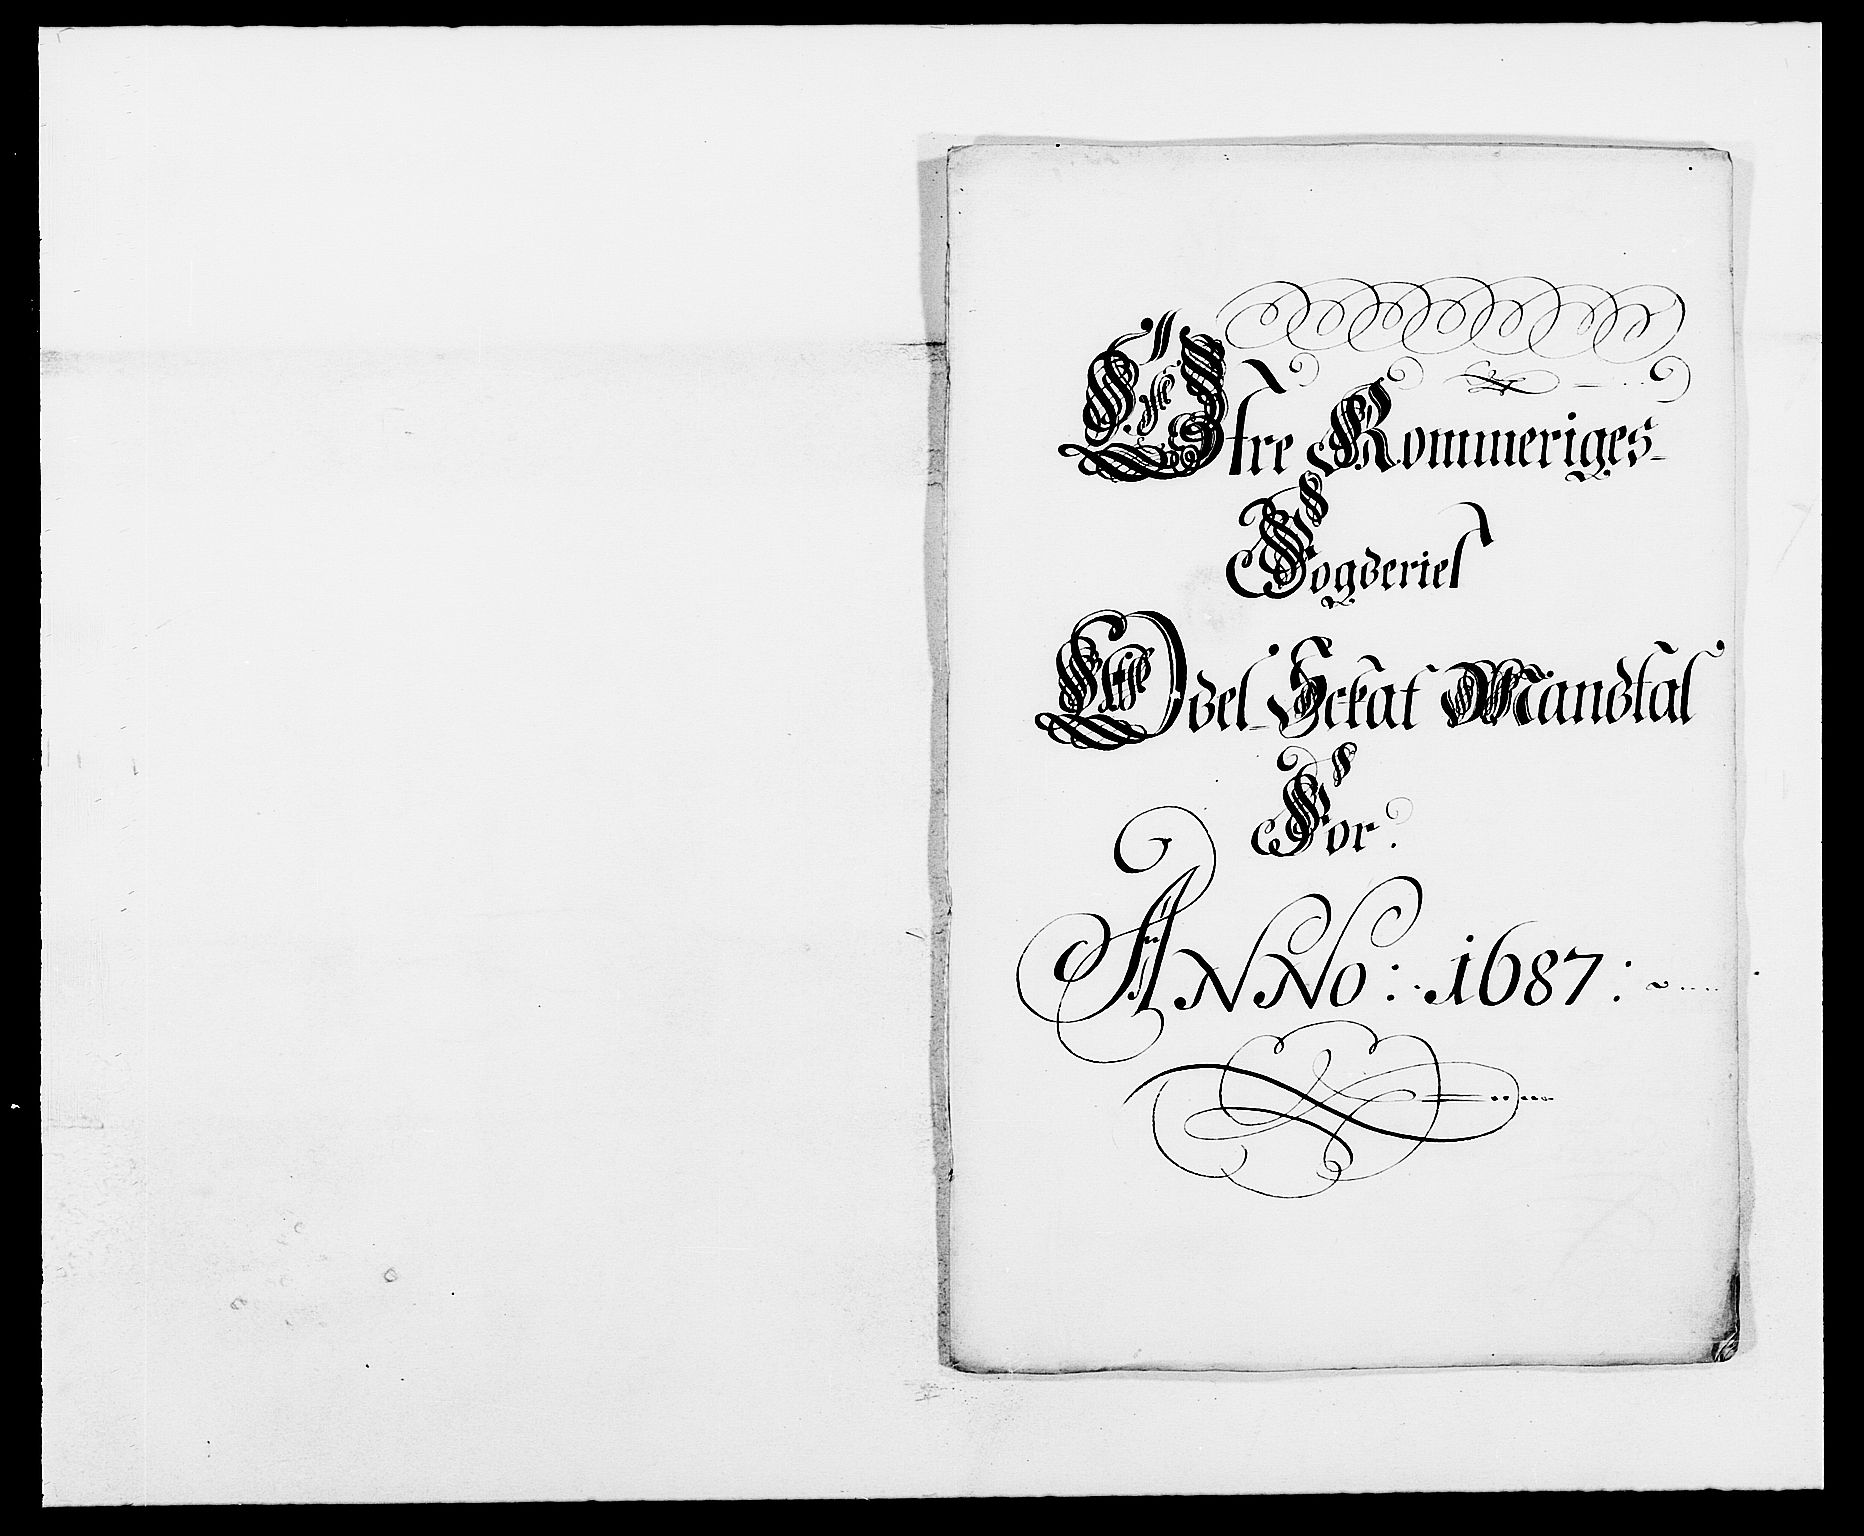 Öfre Rommeriges
Fogderies
Odel Skat Mandtal
For.
ANNo: 1687: